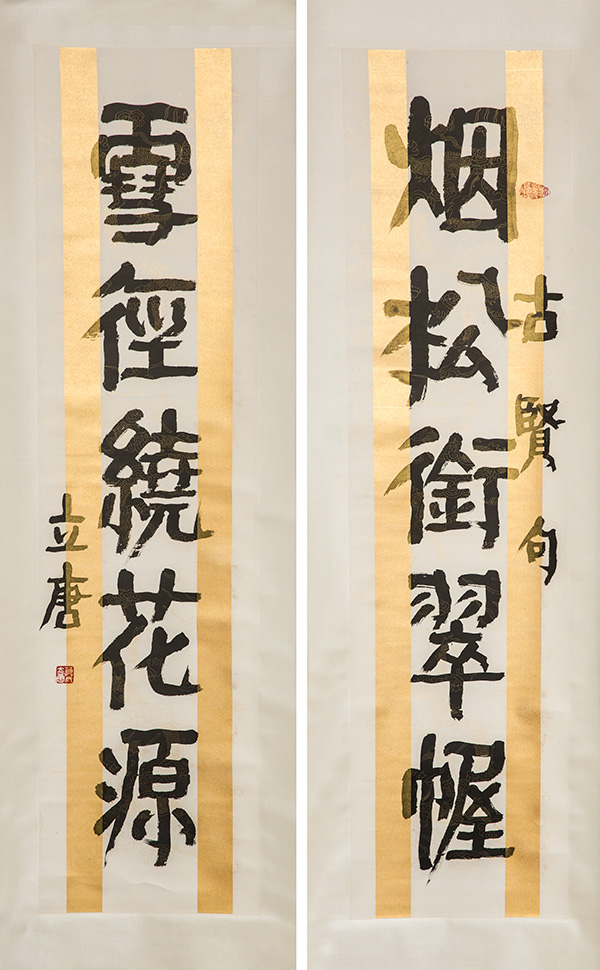 古賢句
烟松銜翠幄
雪徑繞花源
立唐